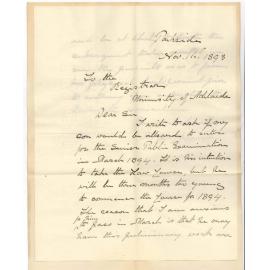 Parkside
Nov. 16. 1893
To the
Registrar
University of Adelaide
Dear Sir
I write to ask if my
son would be allowed to enter
for the Senior Public Examination
in March 1894. It is his intention
to take the Law Course, but he
will be three months too young
to commence the course for 1894.
The reason that I am anxious
for him
to pass in March is that he may
have this preliminary work